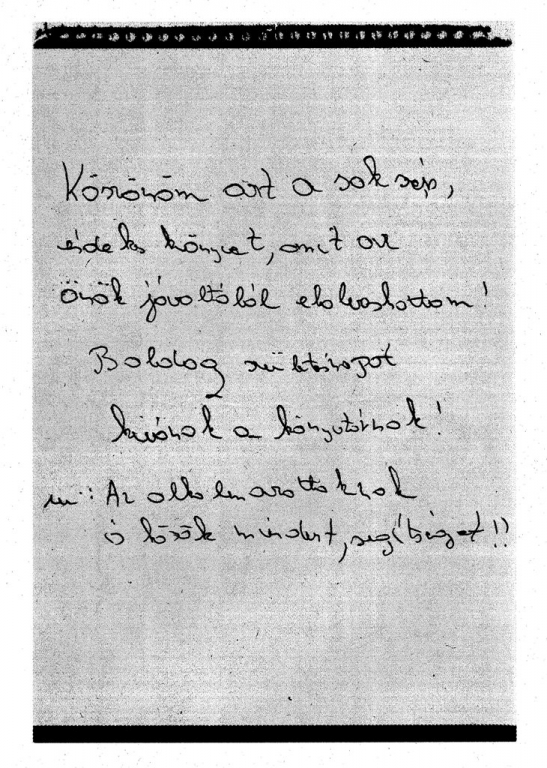 Köszönöm azt a sok szép,
érdekes könyvet, amit az
önök jóvoltából elolvashattam!
Boldog születésnapot
kívánok a könyvtárnak!
ui: Az alkalmazottaknak
is kösök mindent, segítséget!!